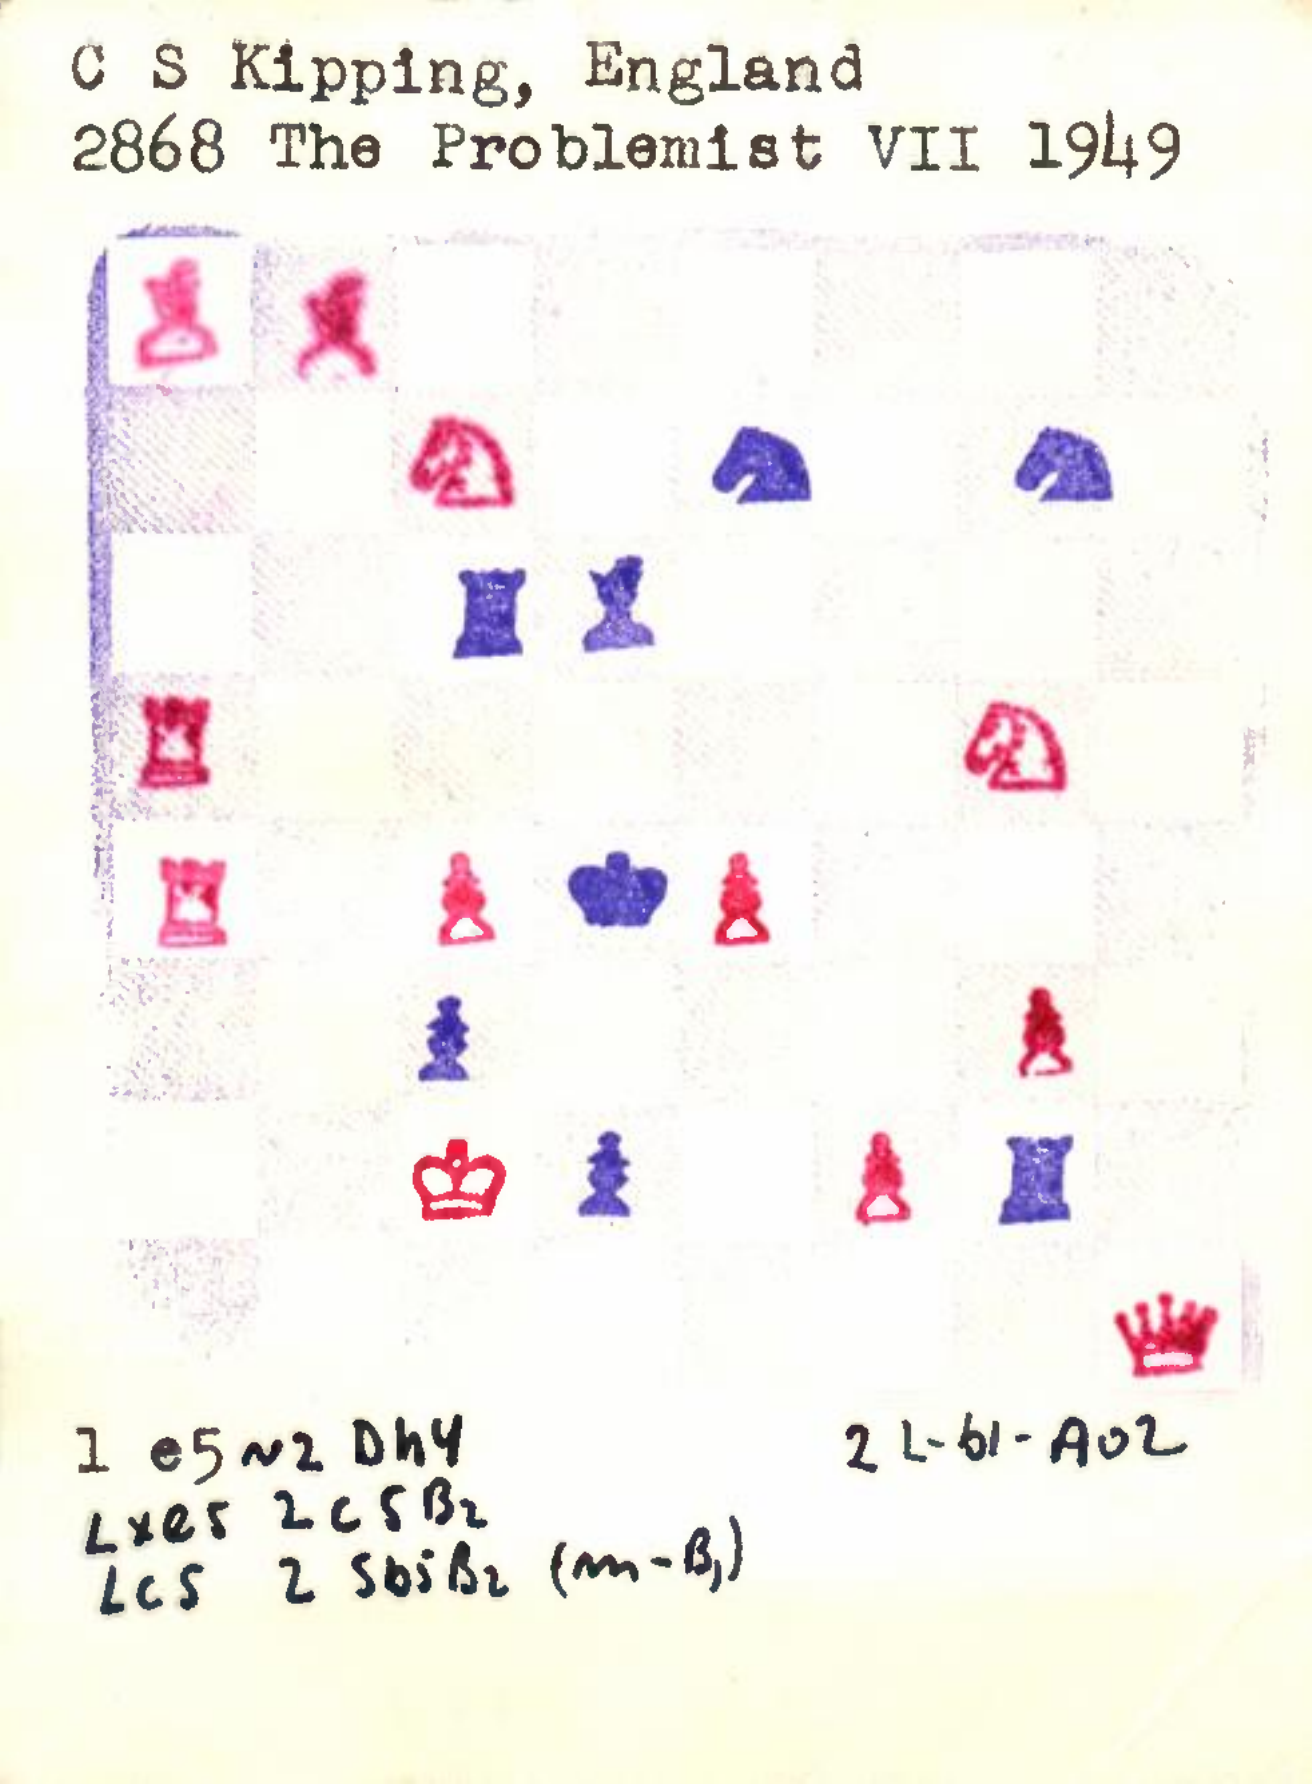 C S Kipping, England
2868 The Problemist VII 1949
1 e5 ~ 2 Dh4
2 L-bl-A02
Lxe5 2 c5 B2
Lc5 2 Sb5 B2 (m-B1)